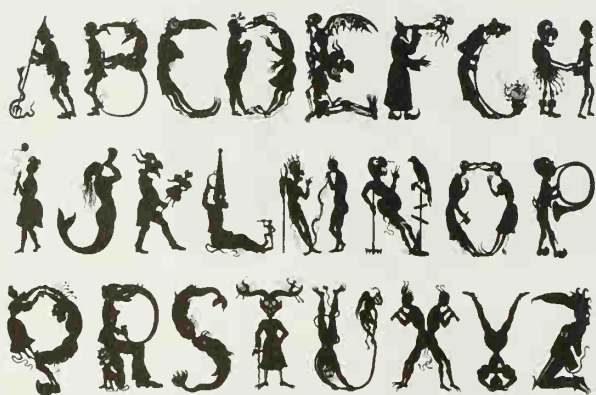 ABCDEFGH
IJKLMNOP
QRSTUXYZ